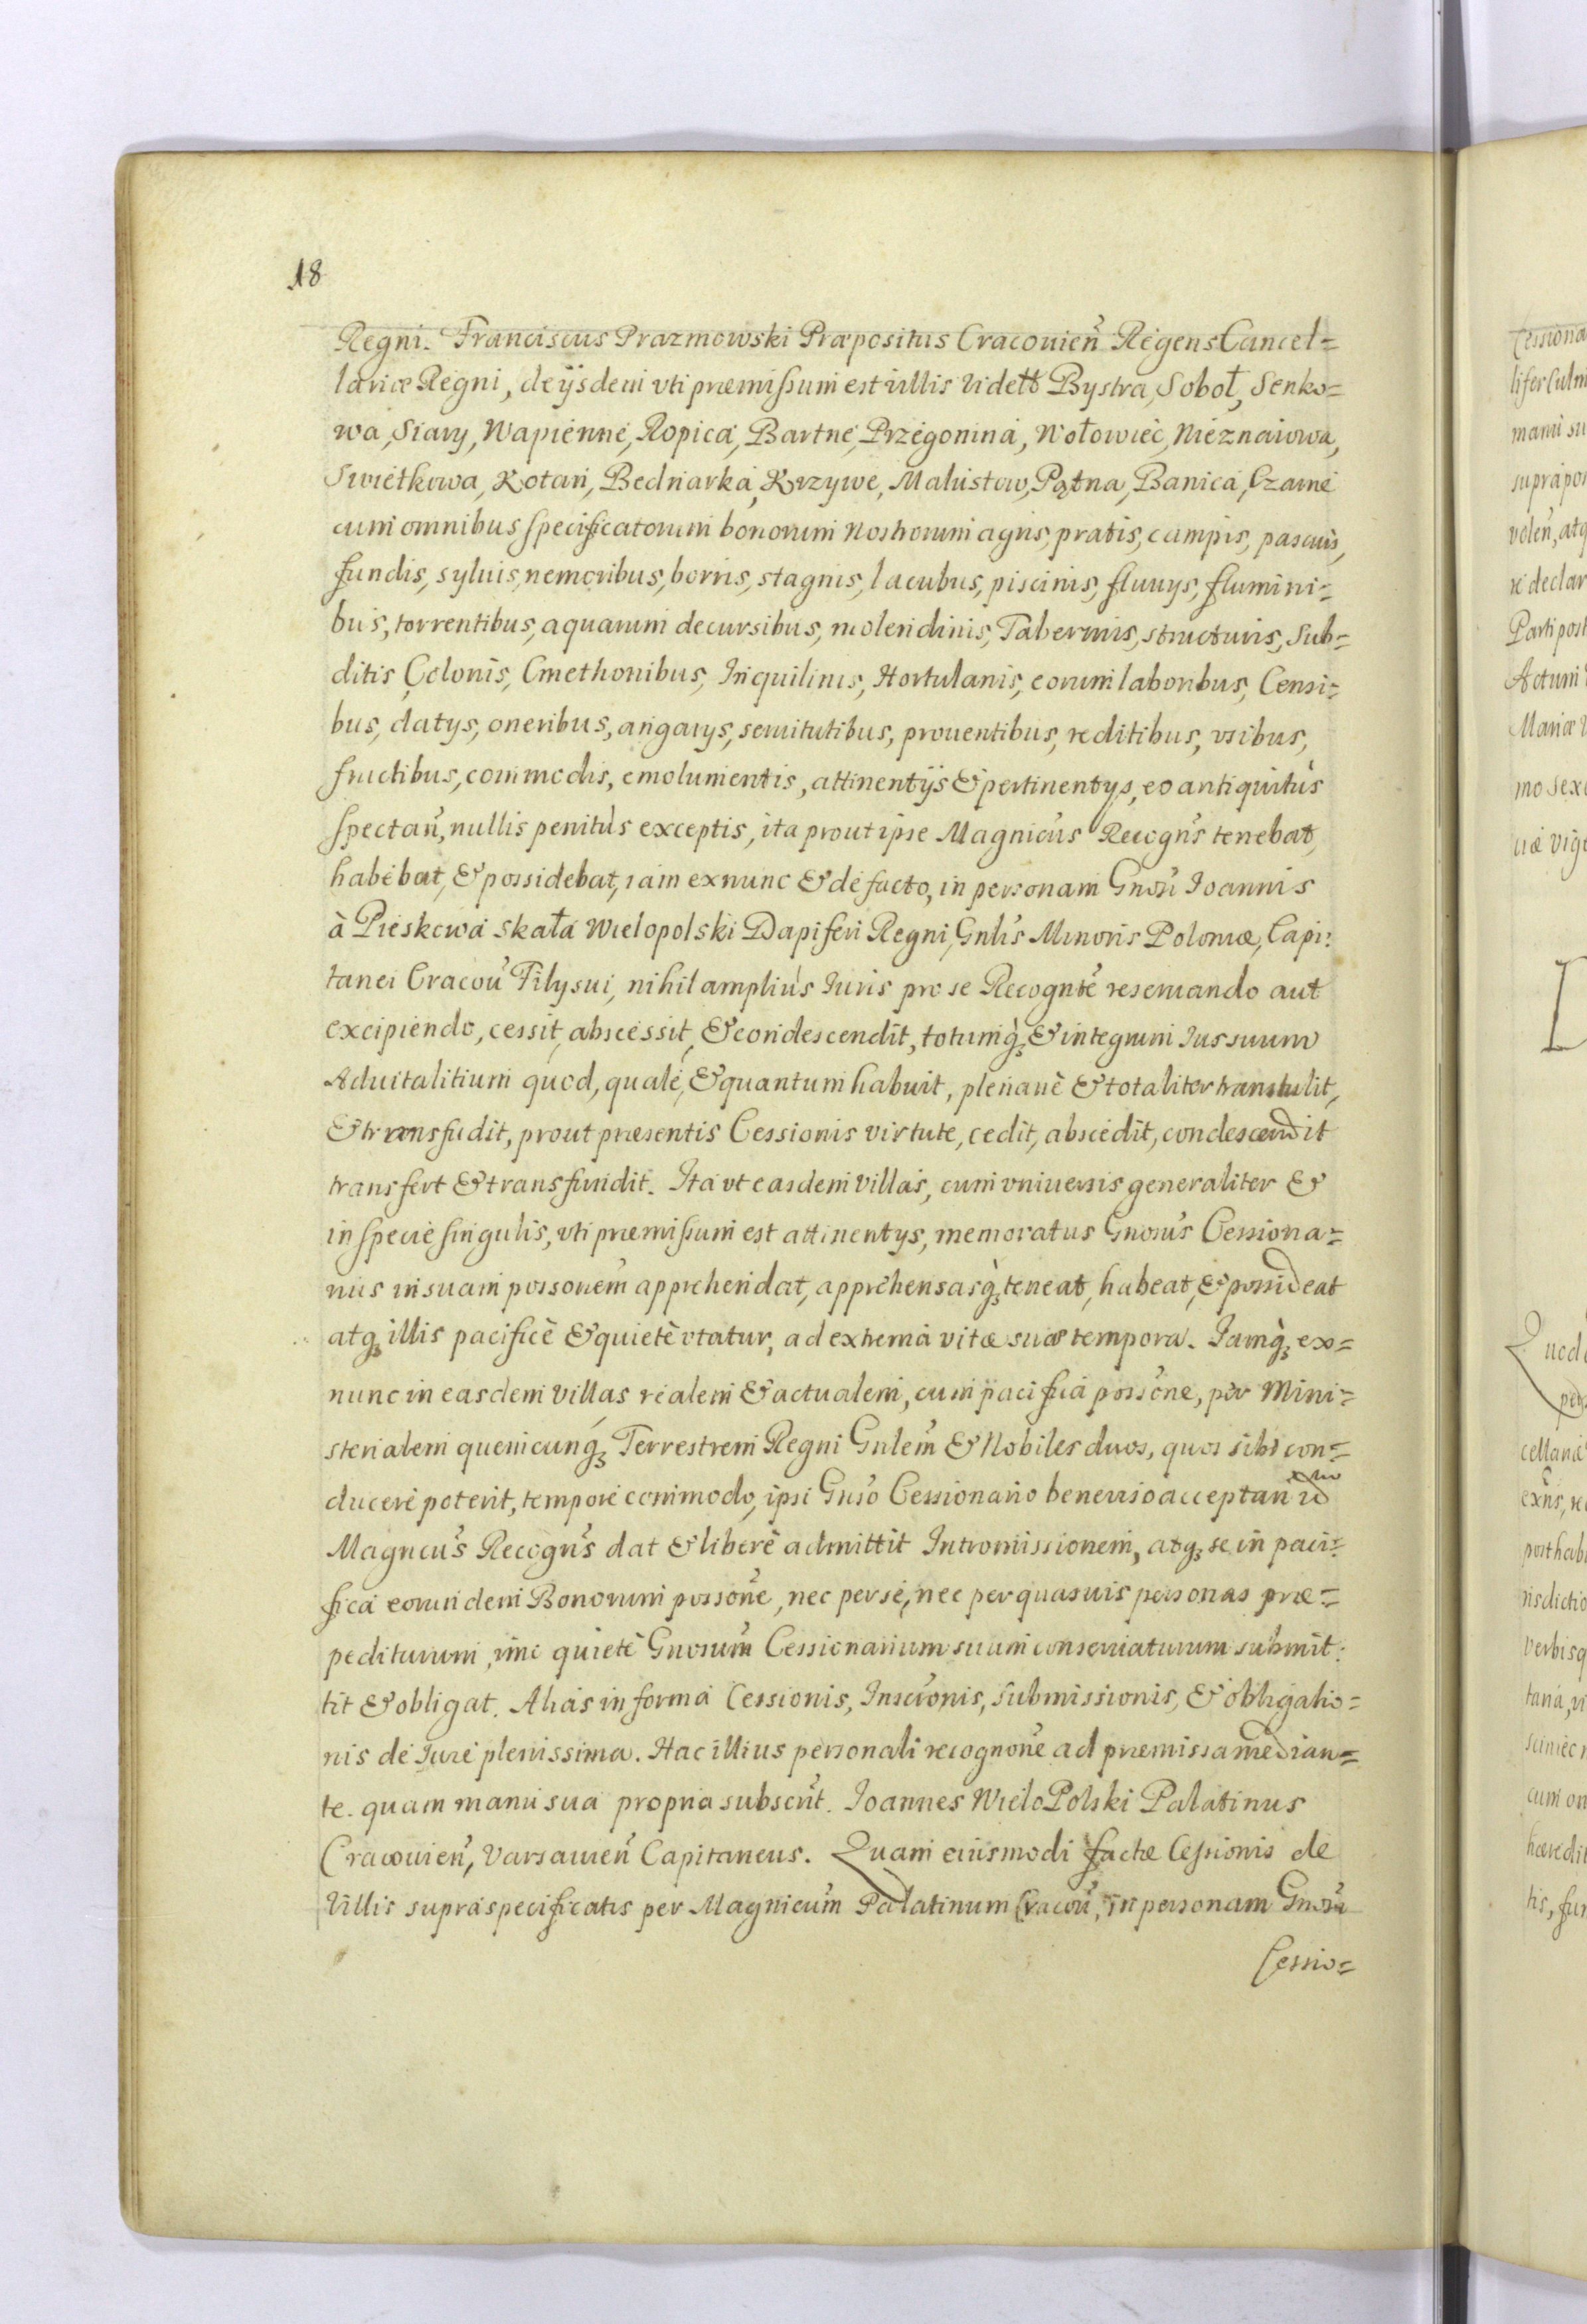 18
Regni. Franciscus Prazmowski Præpositus Cracouien̄ Regens Cancel=
lariæ Regni, de ijsdem vti præmissum est uillis Vidett Bystra, Soboł, Senko=
wa, Siary, Wapienne, Ropica, Bartne, Przegonina, Wołowiec, Nieznaiowa,
Swietkowa, Kotan, Bednarka, Krzywe, Malustow, Pątna, Banica, Czarne
cum omnibus specificatorum bonorum nostrorum agris, pratis, campis, pascuis,
fundis, syluis, nemoribus, borris, stagnis, lacubus, piscinis, fluuys, flumini=
bus, torrentibus, aquarum decursibus, molendinis, Tabernis, structuris, Sub=
ditis Colonis, Cmethonibus, Inquilinis, Hortulanis, eorum laboribus, Censi=
bus, datys, oneribus, angarys, seruitutibus, prouentibus, reditibus, vsibus,
fructibus, commodis, emolumentis, attinentijs & pertinentys, eo antiquitùs
spectan̄, nullis penitùs exceptis, ita prout ipse Magnicus Recogn̄s tenebat,
habebat, & possidebat, iam exnunc & de facto, in personam Gnosi Joannis
à Pieskowa Skała Wielopolski Dapiferi Regni, Gnlis Minoris Poloniæ, Capi=
tanei Cracou̅ Filysui, nihil ampliùs Iuris pro se Recognte reseruando aut
excipiendo, cessit, abscessit, & condescendit, totumq̀₃ & integrum Ius suum
Aduitalitium quod, quale, & quantum habuit, plenariè & totaliter transtulit,
& transfudit, prout præsentis Cessionis virtute, cedit, abscedit, condescendit
transfert & transfundit. Ita vt easdem villas, cum vniuersis generaliter &
in specie singulis, vti præmissum est attinentys, memoratus Gnosus Cessiona=
rius in suam possonem̄ apprehendat, apprehensasq̀₃ teneat, habeat, & possideat
atq₃ illis pacificè & quietè vtatur, ad extrema vitæ suæ tempora. Jamq̀₃ ex=
nunc in easdem villas realem & actualem, cum pacifica possone, per Mini=
sterialem quemcunq́₃ Terrestrem Regni Gnlem̄ & Nobiles duos, quos sibi con=
ducere poterit, tempore commodo, ipsi Gnso Cessionario beneuiso acceptan
Magnicus Recogn̄s dat & liberè admittit Intromissionem, atq₃ se in paci=
fica eorundem Bonorum possone, nec per se, nec per quasuis personas præ=
pediturum, imo quietè Gnosum Cessionarium suum conseruaturum submit=
tit & obligat. Alias in forma Cessionis, Inscronis, submissionis, & obligatio=
nis de Iure plenissima. Hac illius personali recognone ad præmissa median=
te. quam manu sua propria subscrit. Joannes WieloPolski Palatinus
Cracouien̄, Varsauien̄ Capitaneus. Quam eiusmodi factæ Cessionis de
Villis supraspecificatis per Magnicum Palatinum Cracou̅, in personam Gnosi
Cessio=